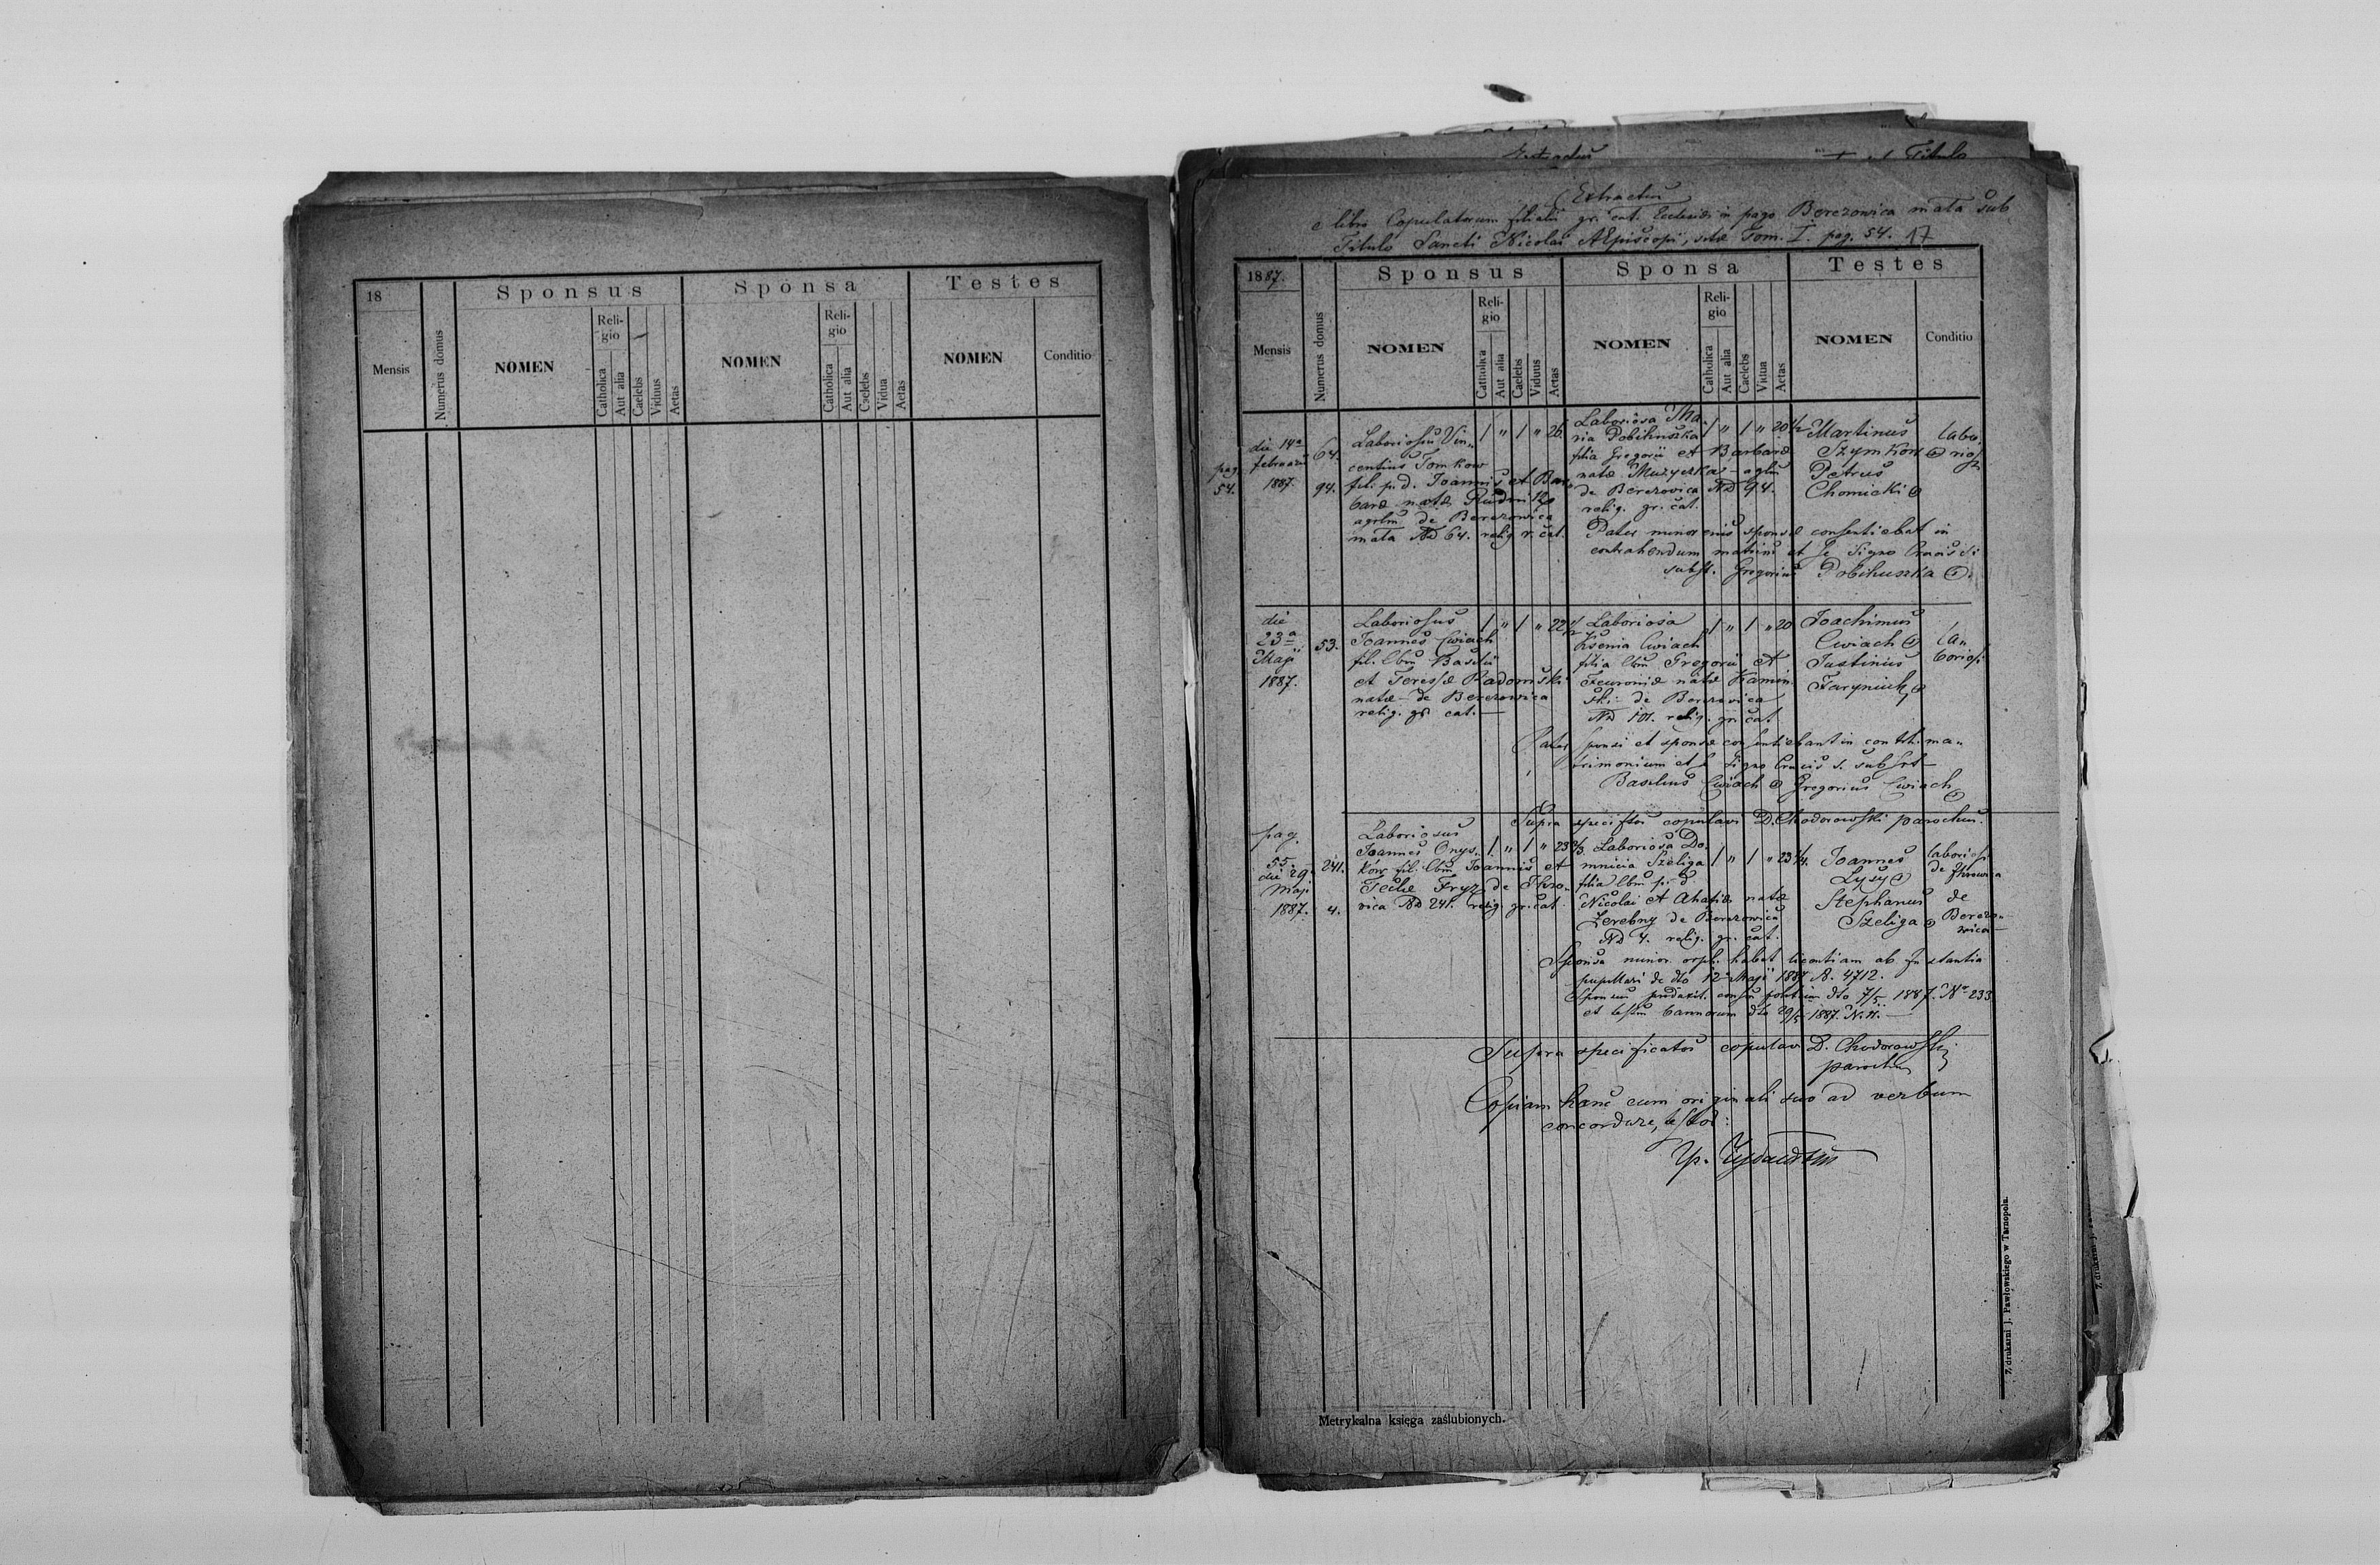 18
Sponsus
Sponsa
Testes
Mensis
Numerus domus
NOMEN
Religio
Catholica
Aut alia
Caelebs
Viduus
Aetas
NOMEN
Religio
Catholica
Aut alia
Caelebs
Vidua
Aetas
NOMEN
Conditio
Extractus
Titulo
Extractus
e libro Copulatorum filialis gr. cat. Ecclesiae in pago Berezowica mała sub
Titulo Sancti Nicolai AEpiscopi, sitae Tom. I. pag. 54. 17
1887.
Sponsus
Sponsa
Testes
Mensis
Numerus domus
NOMEN
Religio
Catholica
Aut alia
Caelebs
Viduus
Aetas
NOMEN
Religio
Catholica
Aut alia
Caelebs
Vidua
Aetas
NOMEN
Conditio
pag. 54.
die 14a
februarii
1887.
64.
94.
Laboriosus Vin-
centius Tomkow
fil. p. d. Joannis et Bar-
barae natae
de Berezowica
mała ND 64. relig. r. cat.
1 " 1 " 26.
Laboriosa Ma-
ria Pobihuszka
filia Gregorii et Barbarae
natae Muzyczka
de Berezovica ND 94.
relig. gr. cat.
1 " 1 " 20 1/2
Martinus
Szymkow
Petrus
Chomicki
labo-
riosi
Pater minorenis sponsae consentiebat in
contrahendum matrim et se Signo Crucis
subst. Gregorius Pobihuszka
die
23a
Maji
1887.
53.
Laboriosus
Joannes Cwiach
fil. lbm Basilii
et Teressae Radomski
natae de Berezowica
relig. gr. cat.
1 " 1 " 22 1/2
Laboriosa
Ksenia Cwiach
filia lbm Gregorii et
Feuroniae natae Kamin-
ski de Berezovica
ND 101. relig. gr. cat
1 " 1 " 20
Joachimus
Cwiach
Justinius
Faryniuk
la-
boriosi
Pater sponsi et sponsae consentiebant in contrh. ma-
trimonium et Signo Crucis s. subsrt
Basilius Cwiach Gregorius Cwiach
Supra speciftos copulavi D. Chodorowski parochus.
pag.
55.
die 29
Maji
1887.
241.
4.
Laboriosus
Joannes Onys-
ków fil. lbm Joannis et
Teclae Fryz de Ihro-
wica ND 241. relig. gr. cat.
1 " 1 " 23
Laboriosa Do-
mnicia Szeliga
filia lbm p. d.
Nicolai et Ahafiae natae
Zerebny de Berezowica
ND 4. relig. gr. cat.
1 " 1 " 23 1/4.
Joannes
Lysy
Stephanus
Szeliga
laboriosi
de Ihrowica
de
Berezo-
wica
Sponsa minor. orph. habet licentiam ab Instantia
pupillari de dto 12 Maji 1887 N. 4712.
Sponsus dto 7/5 1887. No 233
et testim bannorum dto 29/5 1887. N. 11.
Supra specificatos copulavi D. Chodorowski
parochus
Copiam hanc cum originali suo ad verbum
concordare, testor:
Metrykalna księga zaślubionych.
Z drukarni J. Pawłowskiego w Tarnopolu.
Z drukarni J.